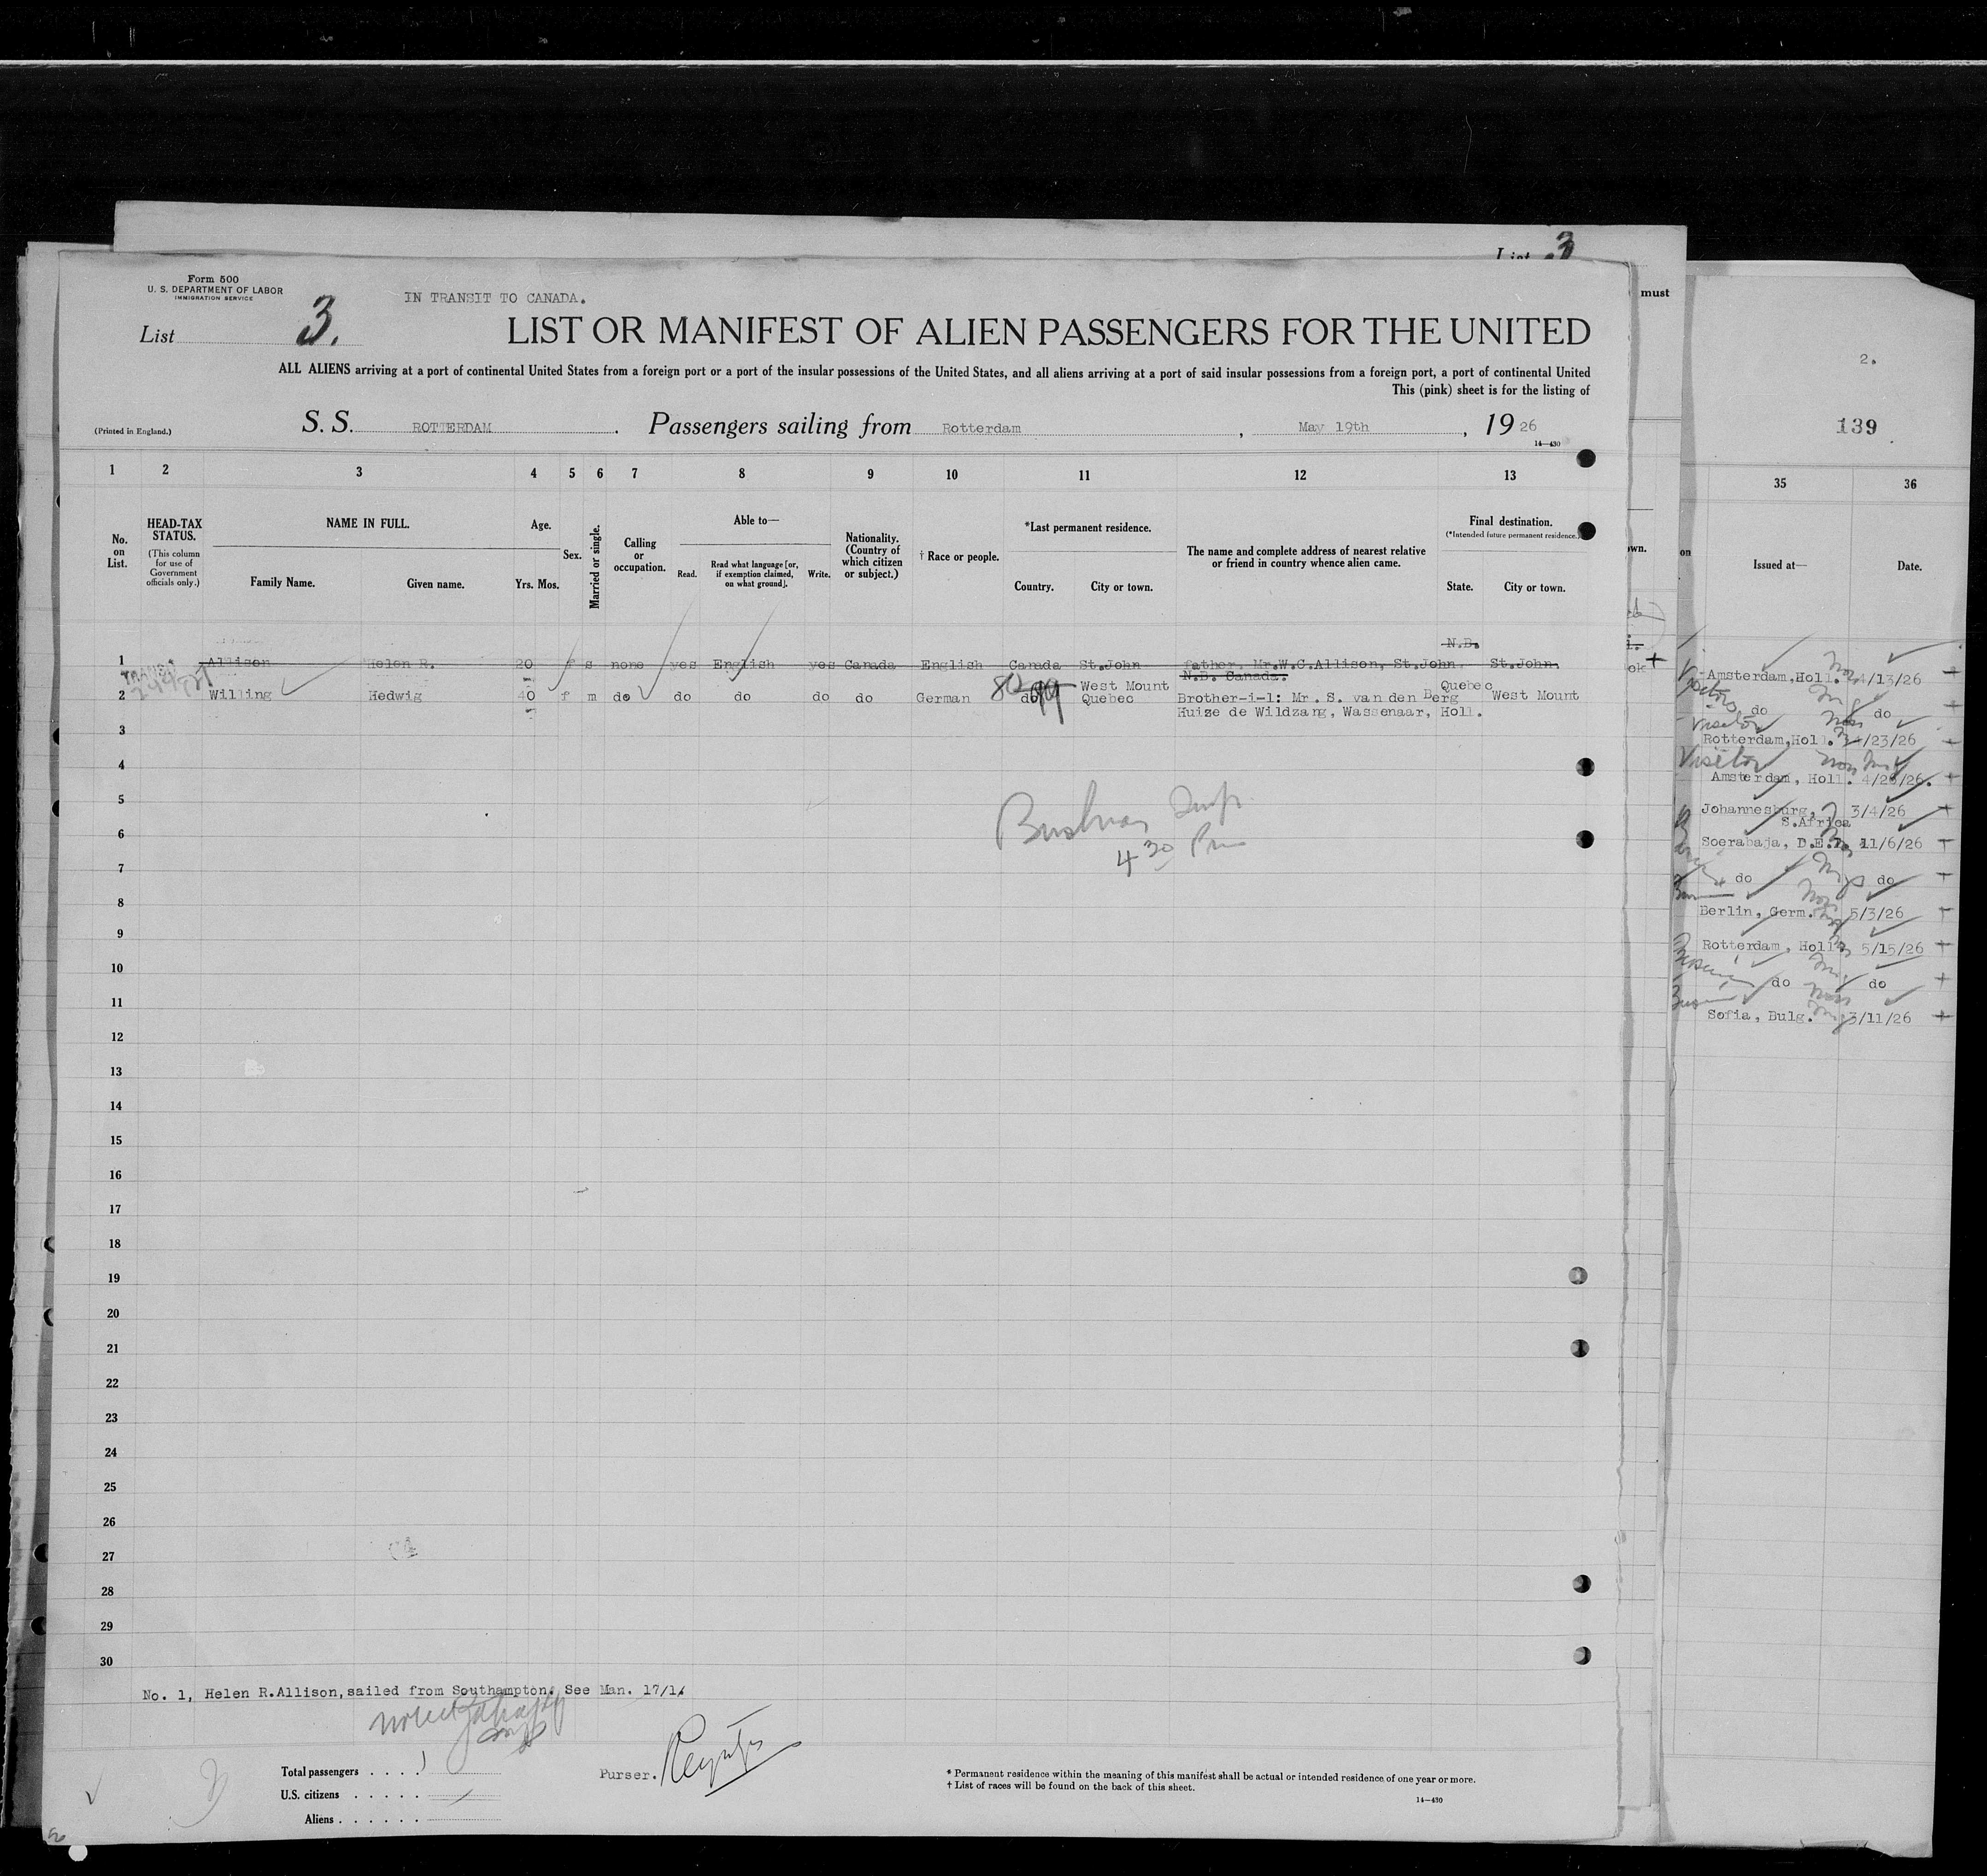 List 3
Form 500
U. S. DEPARTMENT OF LABOR
IMMIGRATION SERVICE
IN TRANSIT TO CANADA.
List 3.
LIST OR MANIFEST OF ALIEN PASSENGERS FOR THE UNITED
ALL ALIENS arriving at a port of continental United States from a foreign port or a port of the insular possessions of the United States, and all aliens arriving at a port of said insular possessions from a foreign port, a port of continental United
This (pink) sheet is for the listing of
(Printed in England.)
S. S. ROTTERDAM. Passengers sailing from Rotterdam, May 19th, 1926
14—430
1 2 3 4 5 6 7 8 9 10 11 12 13
No. on List.
HEAD-TAX STATUS.
(This column for use of Government officials only.)
NAME IN FULL.
Family Name. Given name.
Age.
Yrs. Mos.
Sex.
Married or single.
Calling or occupation.
Able to—
Read. Read what language [or, if exemption claimed, on what ground]. Write.
Nationality. (Country of which citizen or subject.)
† Race or people.
*Last permanent residence.
Country. City or town.
The name and complete address of nearest relative or friend in country whence alien came.
Final destination.
(*Intended future permanent residence.)
State. City or town.
N.B.
1 Allison Helen R. 20 f s none yes English yes Canada English Canada St.John father. Mr.W.C.Allison, St.John. St.John.
N.B. Canada.
TRANSIT
West Mount Quebec
2 Willing Hedwig 40 f m do do do do do German do Quebec Brother-i-l: Mr. S. van den Berg West Mount
Huize de Wildzang, Wassenaar, Holl.
3
4
5
6
4 30 Pm
7
8
9
10
11
12
13
14
15
16
17
18
19
20
21
22
23
24
25
26
27
28
29
30
No. 1, Helen R.Allison, sailed from Southampton. See Man. 17/14
Total passengers . . . .
U.S. citizens . . . . .
Aliens . . . . . .
Purser.
* Permanent residence within the meaning of this manifest shall be actual or intended residence of one year or more.
† List of races will be found on the back of this sheet.
14—430
must
own.
on
2.
139
35 36
Issued at— Date.
Amsterdam, Holl. 4/13/26
do do
Visitor
Rotterdam, Holl. 4/23/26
Visitor
Amsterdam, Holl. 4/26/26.
Johannesburg, 3/4/26
S.Africa
Soerabaja, D.E.I. 11/6/26
do do
Berlin, Germ. 5/3/26
Rotterdam, Holl. 5/15/26
do do
Sofia, Bulg. 3/11/26